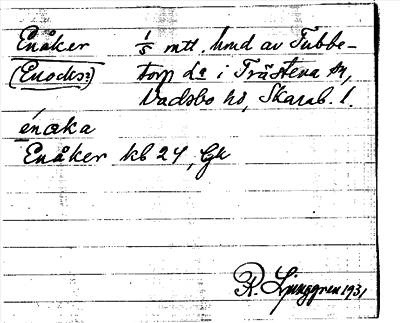 Enåker 1/5 mtl. hmd av Tubbe-
(Enocks?) torp La i Trästena sn,
Vadsbo hd, Skarab. l.
énɑka
Enåker kb 24, Gk
R. Ljunggren 1931